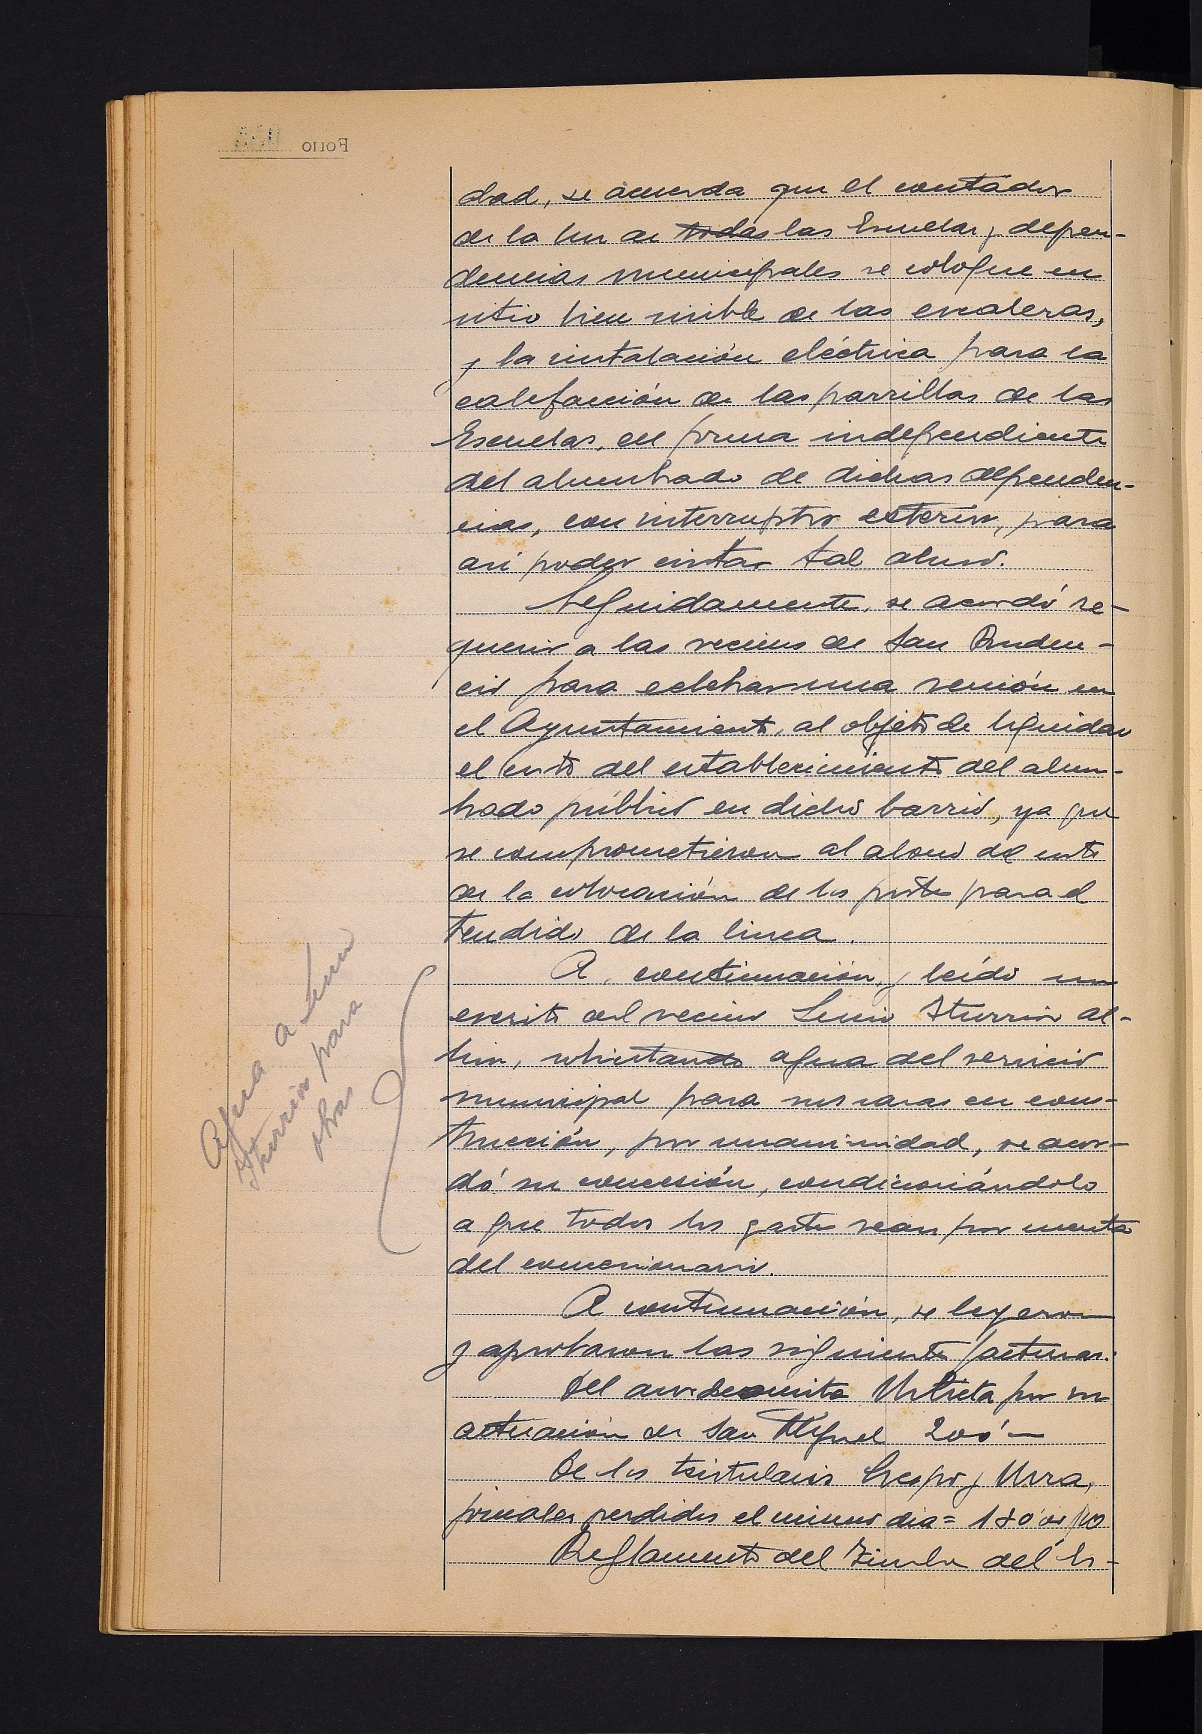 dad, se acuerda que el contador
de la luz de todas las Escuelas y depen-
dencias municipales se coloque en
sitio bien visible de las escaleras,
y la instalación eléctrica para la
calefacción de las parrillas de las
Escuelas, en forma independiente
del alumbrado de dichas dependen-
cias, con interruptor exterior, para
asi poder evitar tal abuso.
Seguidamente, se acordó re-
querir a los vecinos de San Pruden-
cio para celebrar una reunión en
el Ayuntamiento, al objeto de liquidar
el costo del establecimiento del alum-
brado público en dicho barrio, ya que
se comprometieron al abono del costo
de la colocación de los postes para el
tendido de la linea.
A continuación, y leído un
escrito del vecino Lucio Iturrioz Al-
, solicitando agua del servicio
municipal para sus casas en cons-
trucción, por unanimidad, se acor-
dó su concesión, condicionándolo
a que todos los gastos sean por cuenta
del concesionario.
A continuación, se leyeron
y aprobaron las siguientes facturas:
Del Urbieta por su
actuación de San Miguel 200'—
De los Crespo y Urra,
jornales perdidos el mismo dia =
Reglamento del del
Agua a Lucio
Iturrioz para
obras
Folio